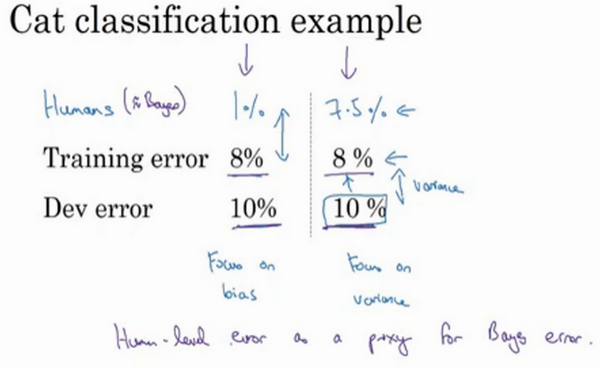 Cat classification example
Humans (≈ Bayes) 1% 7.5%
Training error 8% 8%
Dev error 10% 10%
variance
Focus on bias
Focus on variance
Human-level error as a proxy for Bayes error.